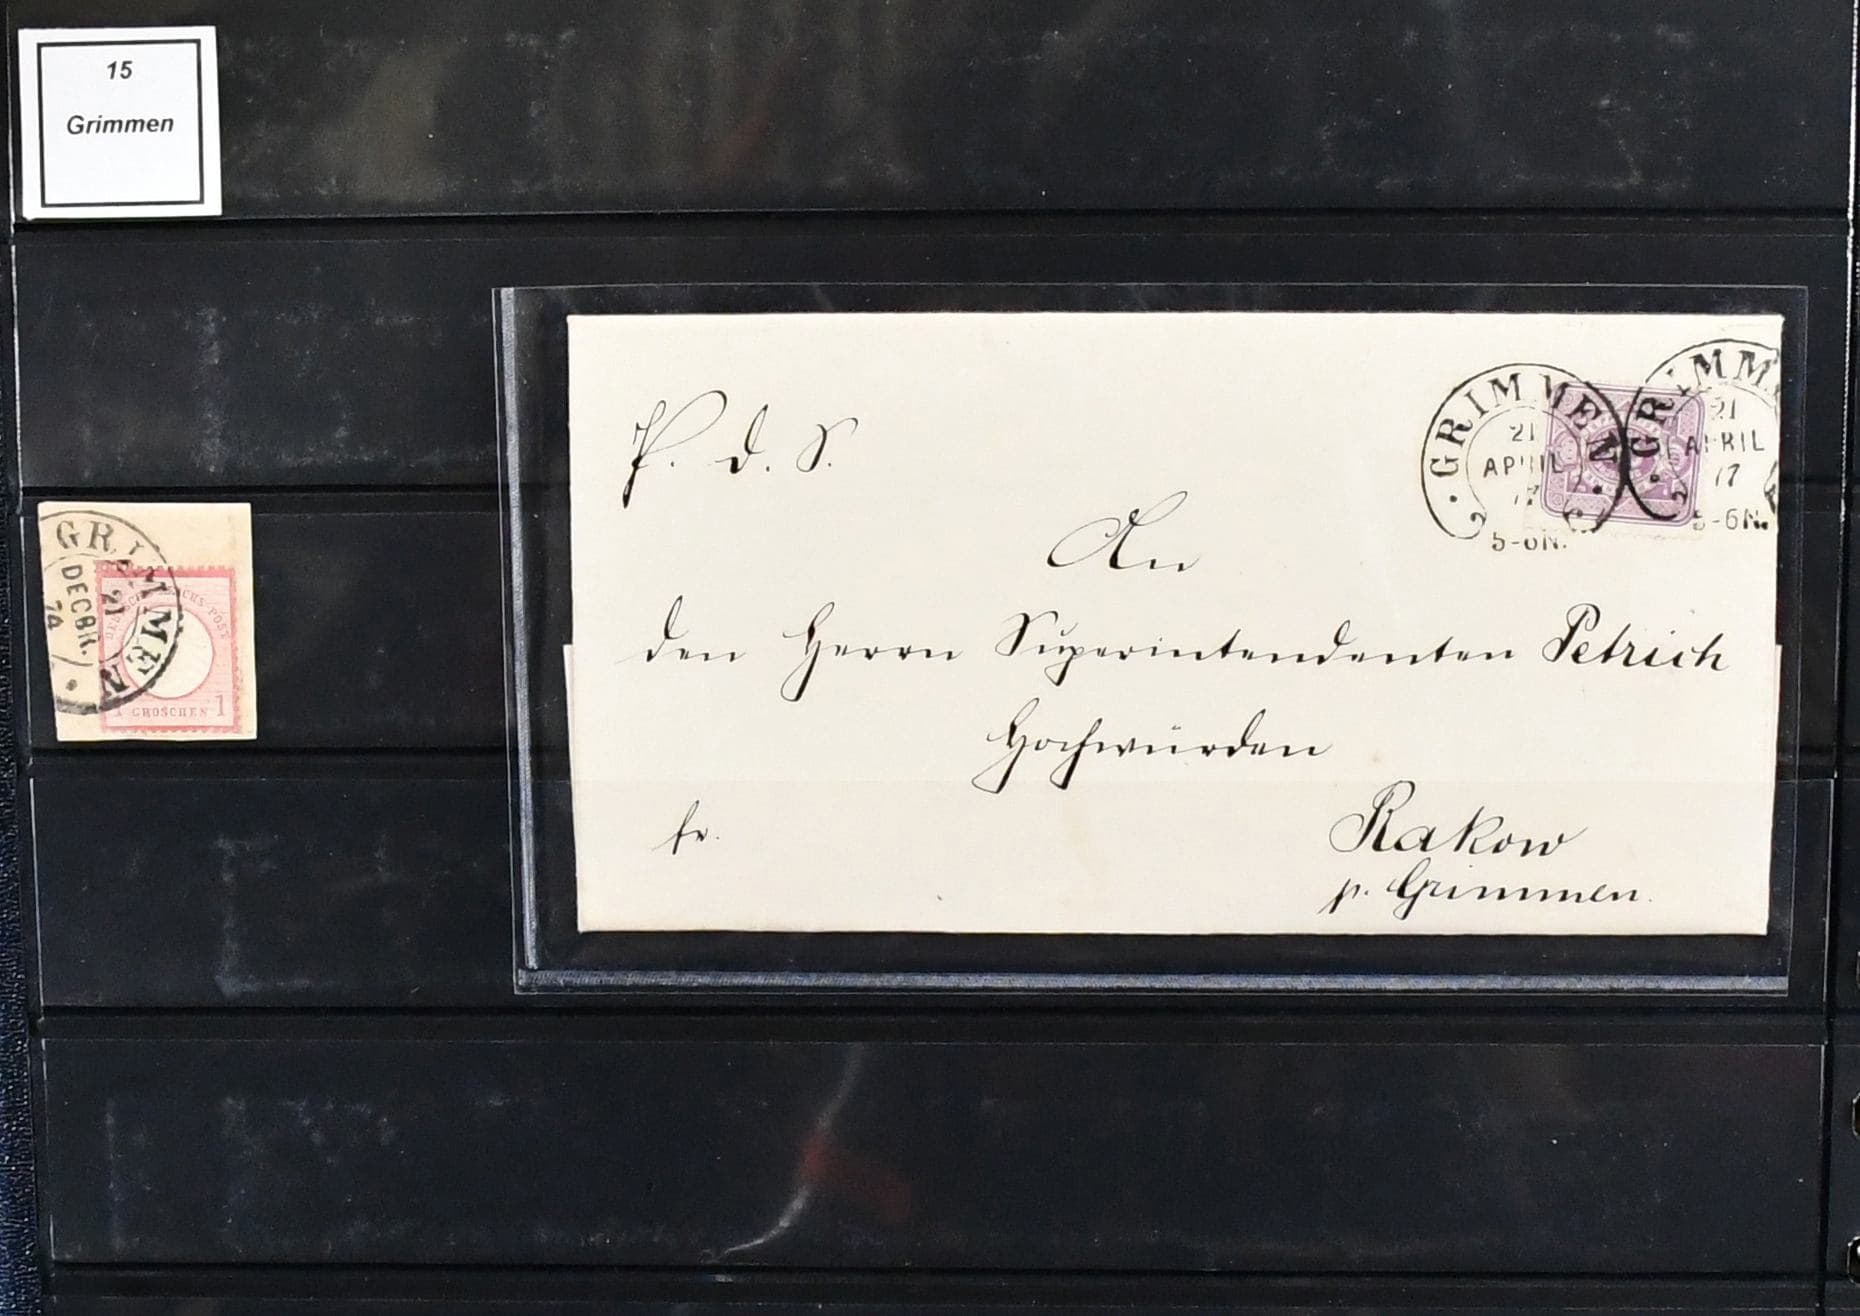 15
Grimmen
P. d. S.
GRIMMEN
21
APRIL
17
5-6N.
GRIMM
21
APRIL
17
5-6N.
An
den Herrn Superintendenten Petrich
Hochwürden
fr.
Rakow
p. Grimmen.
GRIMMEN
21
DECBR.
74
1 GROSCHEN 1